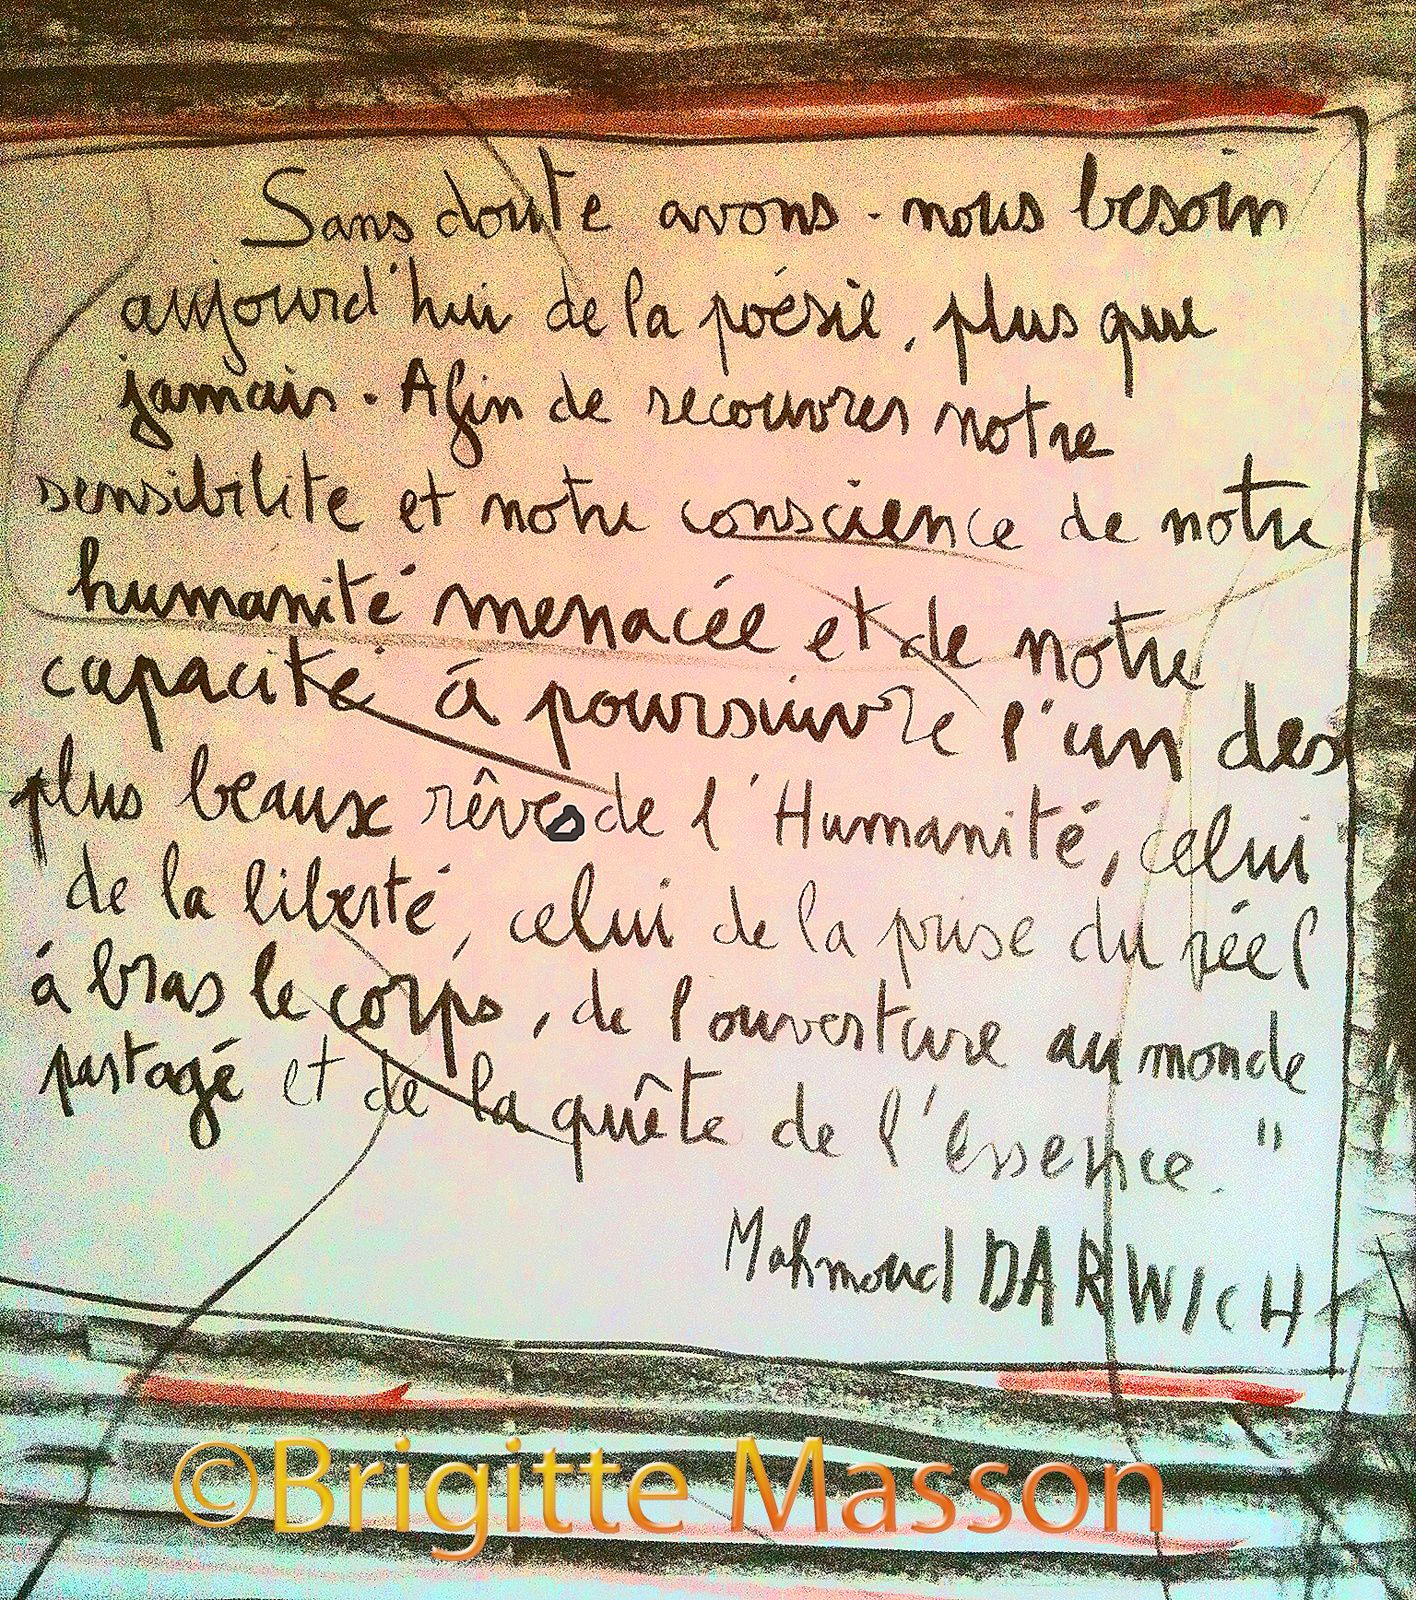 Sans doute avons-nous besoin
aujourd'hui de la poésie, plus que
jamais. Afin de recouvrer notre
sensibilite et notre conscience de notre
humanité menacée et de notre
capacité à poursuivre l'un des
plus beaux rêves de l'Humanité, celui
de la liberté, celui de la prise du réel
à bras le corps, de l'ouverture au monde
partagé et de la quête de l'essence."
Mahmoud DARWICH
©Brigitte Masson